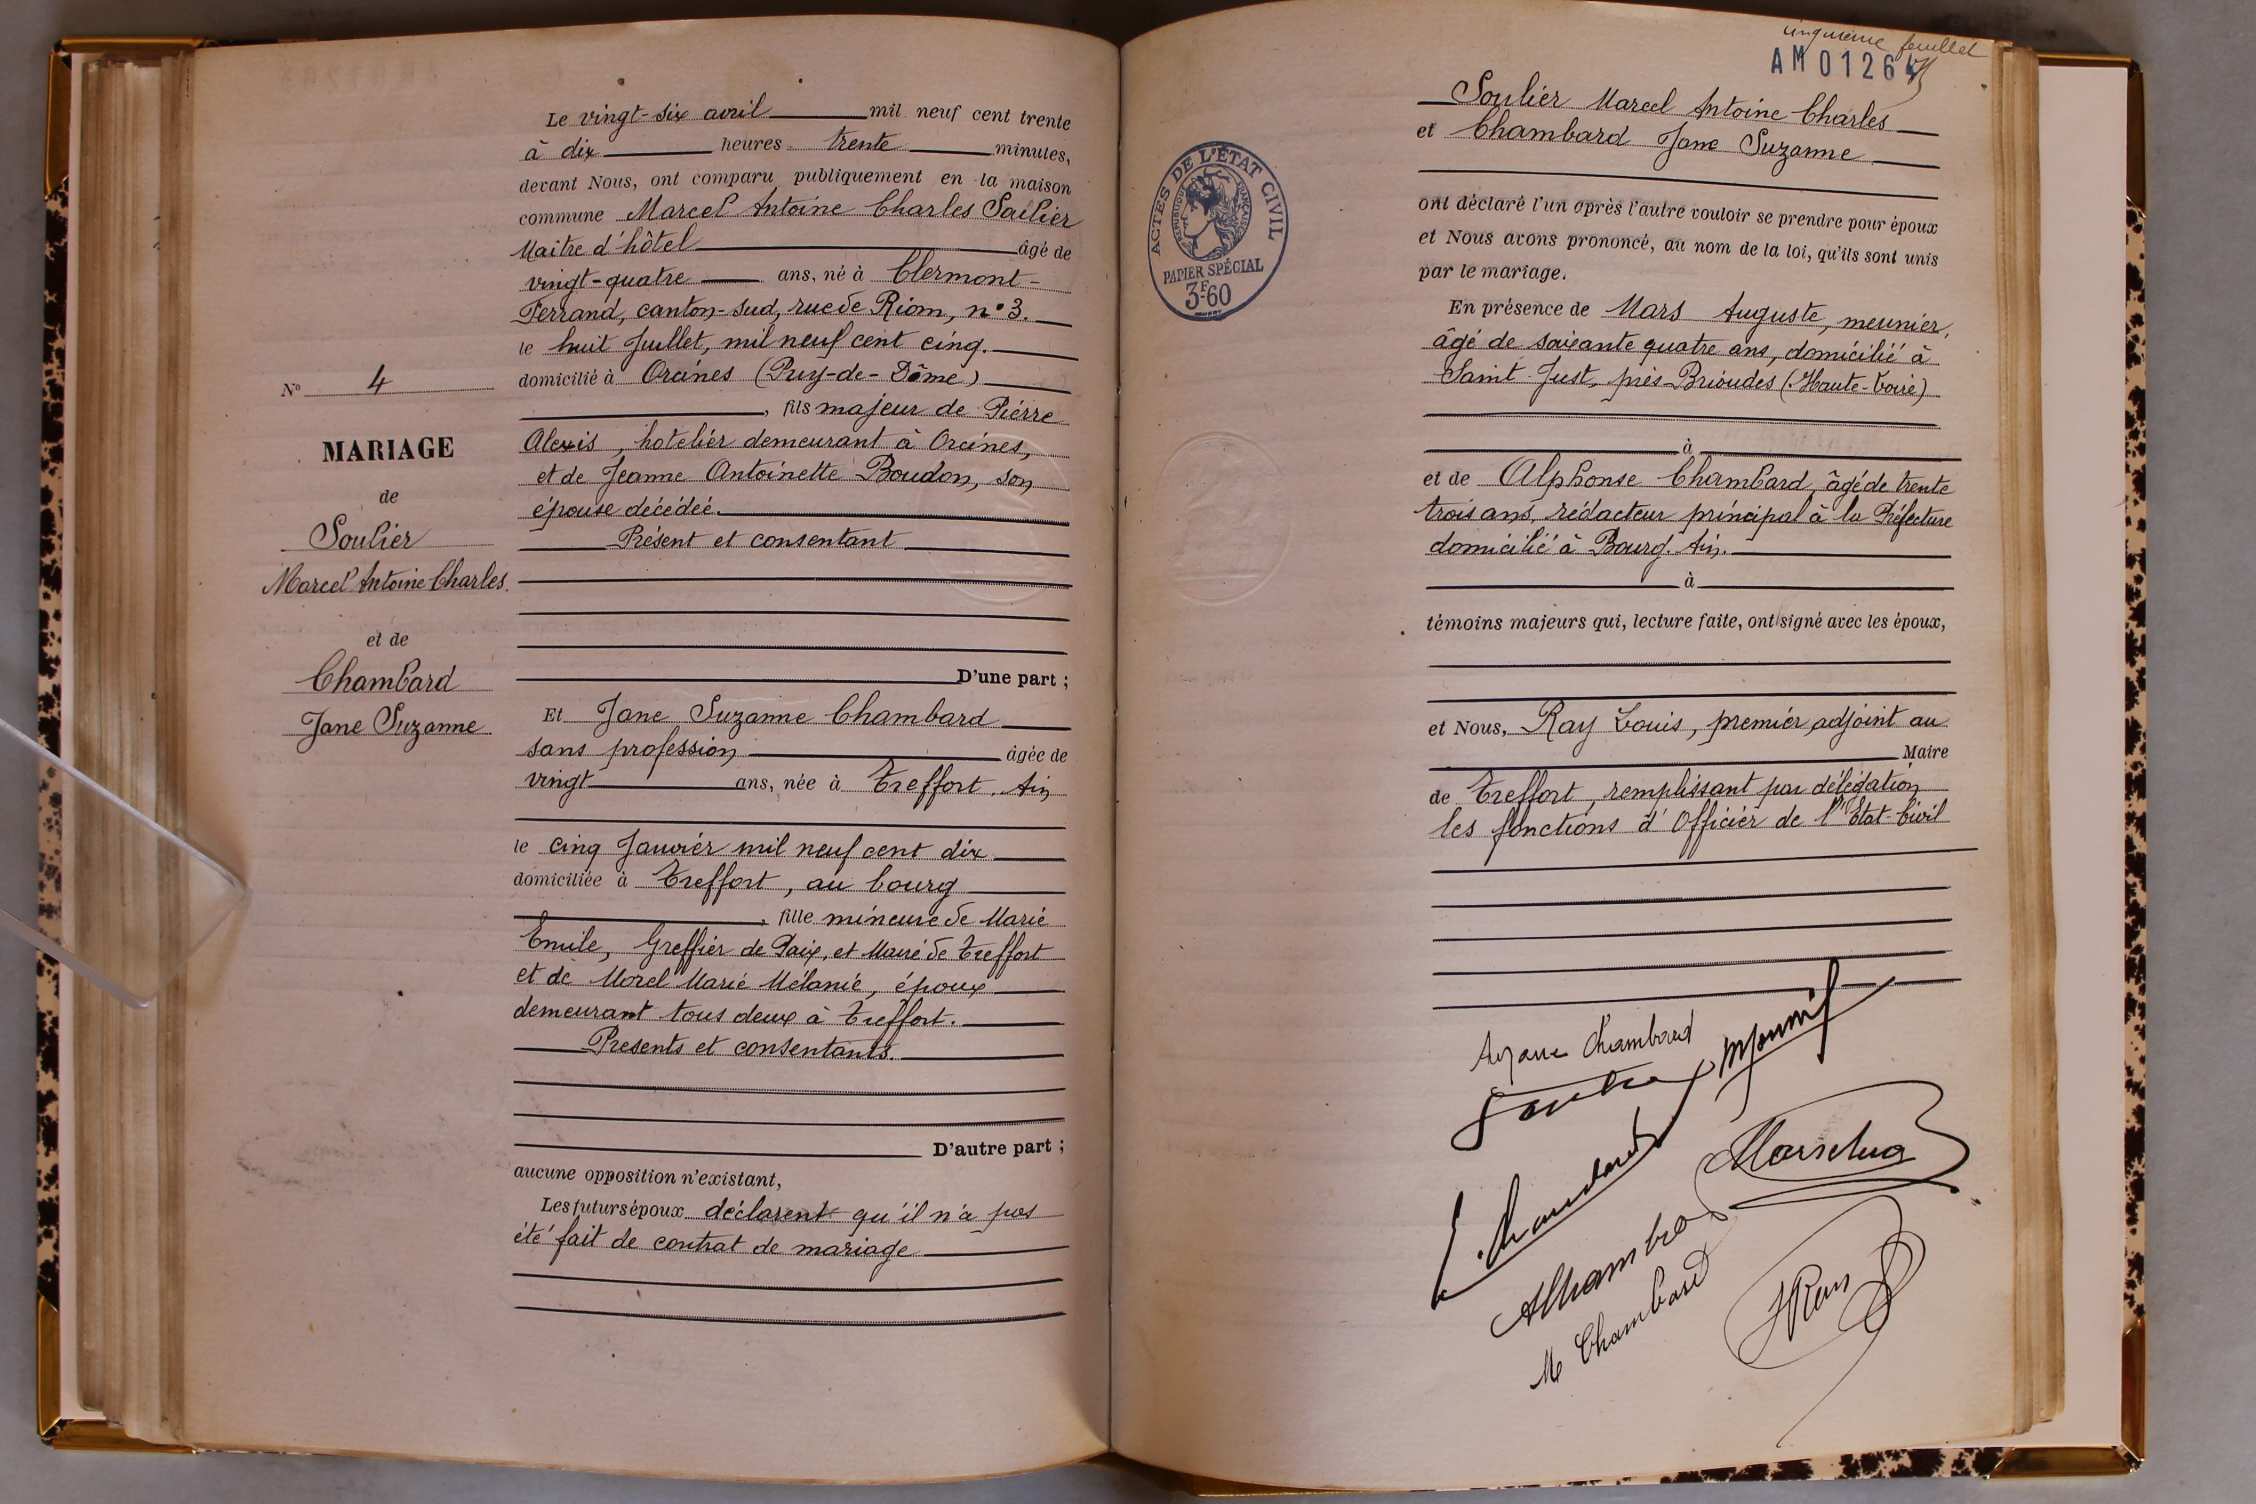 Le vingt-six avril mil neuf cent trente
à dix heures trente minutes,
devant Nous, ont comparu publiquement en la maison
commune Marcel Antoine Charles Soulier
Maitre d'hôtel âgé de
vingt-quatre ans, né à Clermont-
Ferrand, canton-sud, rue de Riom, n° 3.
le huit Juillet, mil neuf cent cinq.
domicilié à Orcines (Puy-de-Dôme)
, fils majeur de Pierre
Alexis, hotelier demeurant à Orcines,
et de Jeanne Antoinette Boudon, son
épouse décédée.
Présent et consentant
D'une part ;
N° 4
MARIAGE
de
Soulier
Marcel Antoine Charles.
et de
Chambard
Jane Suzanne
Et Jane Suzanne Chambard
sans profession âgée de
vingt ans, née à Treffort. Ain
le cinq Janvier mil neuf cent dix
domiciliée à Treffort, au bourg
, fille mineure de Marie
Emile, Greffier de Paix, et Maire de Treffort
et de Morel Marie Mélanie, époux
demeurant tous deux à Treffort.
Presents et consentants.
D'autre part ;
aucune opposition n'existant,
Les futurs époux déclarent qu'il n'a pas
été fait de contrat de mariage
cinquième feuillet
AM01264
Soulier Marcel Antoine Charles
et Chambard Jane Suzanne
ACTES DE L'ÉTAT CIVIL
RÉPUBLIQUE FRANÇAISE
PAPIER SPÉCIAL
3F60
ont déclaré l'un après l'autre vouloir se prendre pour époux
et Nous avons prononcé, au nom de la loi, qu'ils sont unis
par le mariage.
En présence de Mars Auguste, meunier,
âgé de soixante quatre ans, domicilié à
Saint-Just, près Brioudes (Haute-Loire)
à
et de Alphonse Chambard, âgé de trente
trois ans, rédacteur principal à la Préfecture
domicilié à Bourg. Ain.
à
témoins majeurs qui, lecture faite, ont signé avec les époux,
et Nous, Ray Louis, premier adjoint au
Maire
de Treffort, remplissant par délégation
les fonctions d'Officier de l'Etat-Civil
Suzanne Chambard
Soulier
E. Chambard
M Chambard
LRay